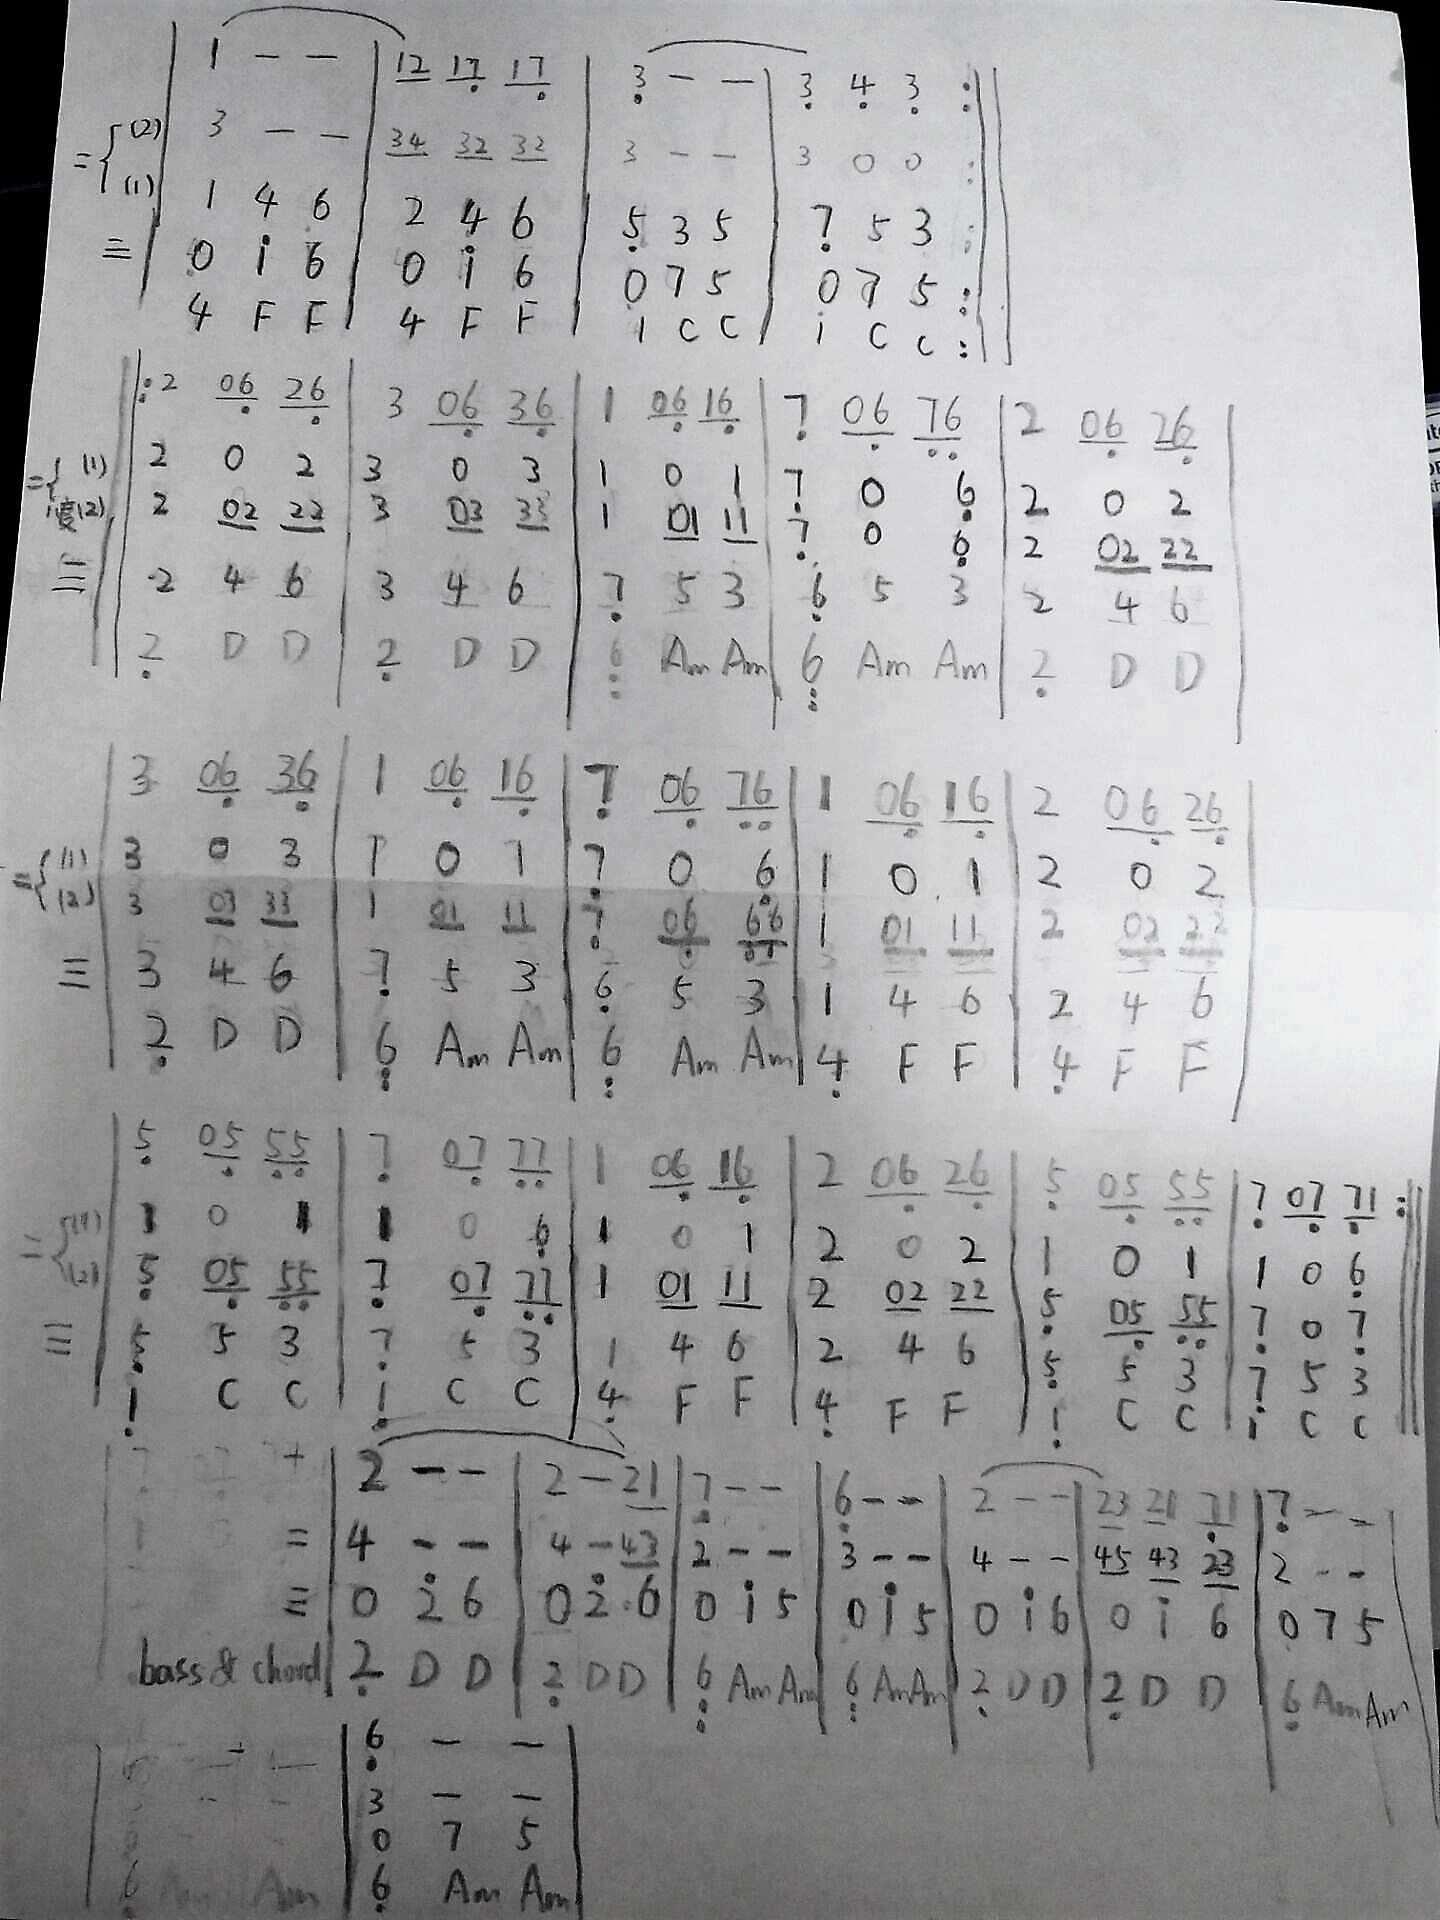 1 — — | 12 17 17 | 3 — — | 3 4 3 :||
={ (2) 3 — — | 34 32 32 | 3 — — | 3 0 0 :||
(1) 1 4 6 | 2 4 6 | 5 3 5 | 7 5 3 :||
≡ 0 i 6 | 0 i 6 | 0 7 5 | 0 7 5 :||
4 F F | 4 F F | 1 C C | 1 C C :||
||: 2 06 26 | 3 06 36 | 1 06 16 | 7 06 76 | 2 06 26 |
={ (1) 2 0 2 | 3 0 3 | 1 0 1 | 7 0 6 | 2 0 2 |
(2) 2 02 22 | 3 03 33 | 1 01 11 | 7 0 6 | 2 02 22 |
≡ 2 4 6 | 3 4 6 | 7 5 3 | 6 5 3 | 2 4 6 |
2 D D | 2 D D | 6 Am Am | 6 Am Am | 2 D D |
3 06 36 | 1 06 16 | 7 06 76 | 1 06 16 | 2 06 26 |
={ (1) 3 0 3 | 1 0 1 | 7 0 6 | 1 0 1 | 2 0 2 |
(2) 3 03 33 | 1 01 11 | 7 06 66 | 1 01 11 | 2 02 22 |
≡ 3 4 6 | 7 5 3 | 6 5 3 | 1 4 6 | 2 4 6 |
2 D D | 6 Am Am | 6 Am Am | 4 F F | 4 F F |
5 05 55 | 7 07 77 | 1 06 16 | 2 06 26 | 5 05 55 | 7 07 71 :||
={ (1) 1 0 1 | 1 0 6 | 1 0 1 | 2 0 2 | 1 0 1 | 1 0 6
(2) 5 05 55 | 7 07 77 | 1 01 11 | 2 02 22 | 5 05 55 | 7 0 7
≡ 5 5 3 | 7 5 3 | 1 4 6 | 2 4 6 | 5 5 3 | 7 5 3
1 C C | 1 C C | 4 F F | 4 F F | 1 C C | 1 C C
| 2 — — | 2 — 21 | 7 — — | 6 — — | 2 — — | 23 21 71 | 7 — — |
= | 4 — — | 4 — 43 | 2 — — | 3 — — | 4 — — | 45 43 23 | 2 — — |
≡ | 0 2 6 | 0 2 6 | 0 i 5 | 0 i 5 | 0 i 6 | 0 i 6 | 0 7 5 |
bass & chord | 2 D D | 2 D D | 6 Am Am | 6 Am Am | 2 D D | 2 D D | 6 Am Am |
| 6 — — |
| 3 — — |
| 0 7 5 |
| 6 Am Am |